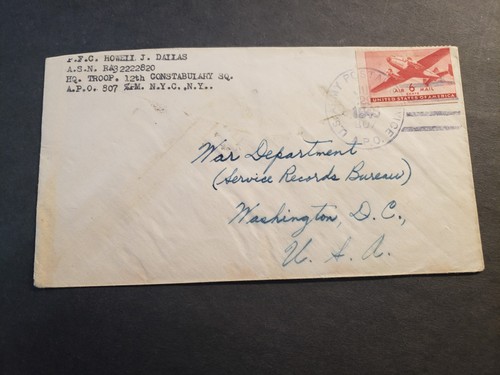 P.F.C. HOWELL J. DALLAS
A.S.N. RA32222820
HQ. TROOP. 12th CONSTABULARY SQ.
A.P.O. 807 %P.M. N.Y.C.,N.Y..
AIR 6 MAIL
CENTS
UNITED STATES OF AMERICA
War Department
(Service Records Bureau)
Washington, D.C.,
U. S. A.